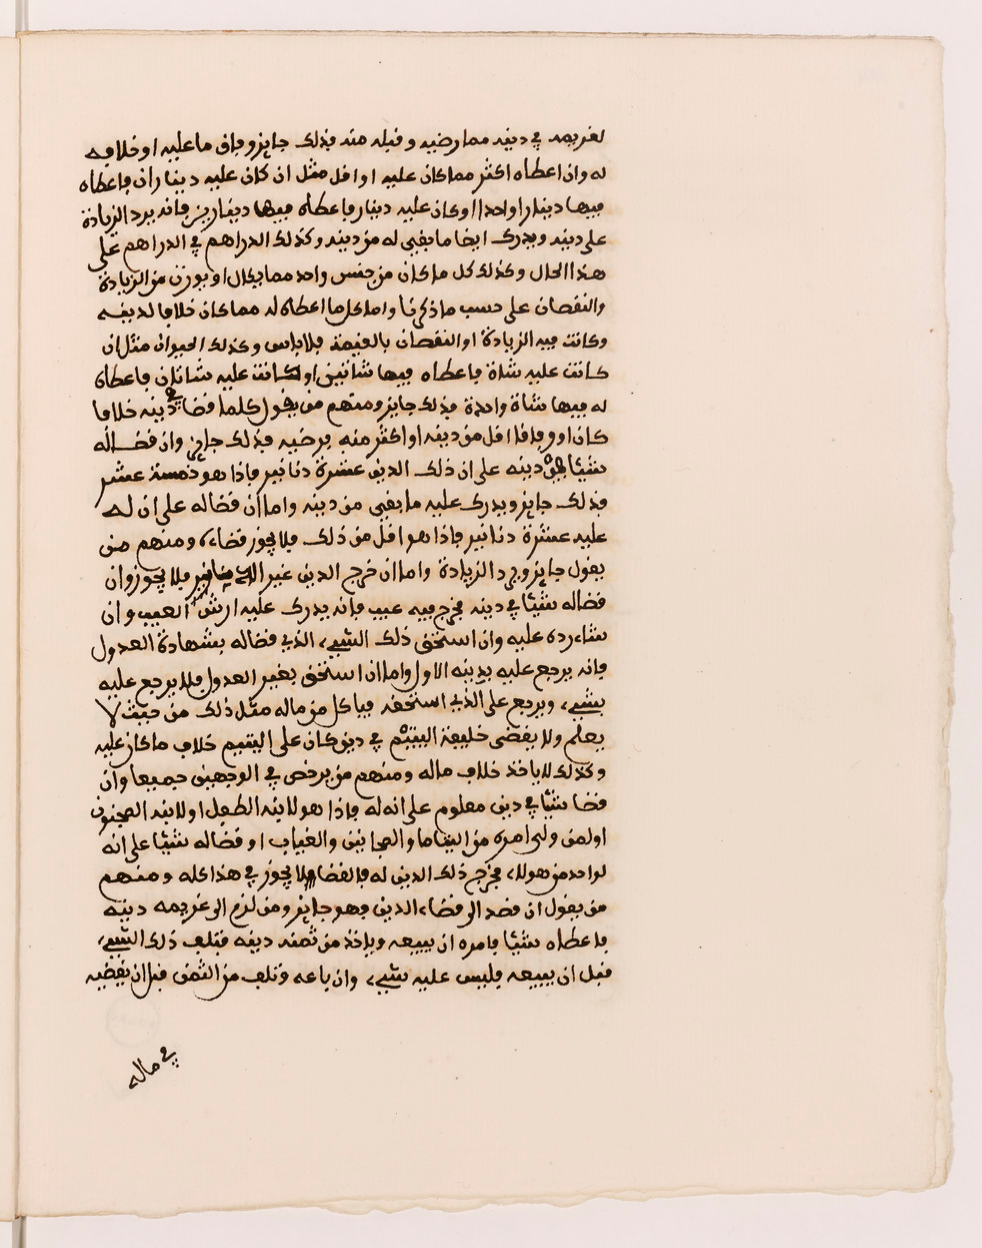 لغريمه في دينه مما رضيه وقبله منه فذلك جايز وفاق ما عليه او خلافه
له وان اعطاه اكثر مما كان عليه او اقل مثل ان كان عليه ديناران فاعطاه
فيها دينارا واحدا او كان عليه دينار فاعطاه فيها دينارين فانه يرد الزيادة
على دينه ويدرك ايضا ما بقي له من دينه وكذلك الدراهم في الدراهم على
هذا الحال وكذلك كل ما كان من جنس واحد مما يكال او يوزن من الزيادة
والنقصان على حسب ما ذكرنا واما كل ما اعطاه له مما كان خلافا لدينه
وكانت فيه الزيادة او النقصان بالقيمة فلا باس وكذلك الحيوان مثل ان
كانت عليه شاة فاعطاه فيها شاتين او كانت عليه شاتان فاعطاه
له فيها شاة واحدة فذلك جايز ومنهم من يقول كلما قضا في دينه خلافا
كان او وفاقا اقل من دينه او اكثر منه برضيه فذلك جايز وان قضا له
شيئا في دينه على ان ذلك الدين عشرة دنانير فاذا هو خمسة عشر
فذلك جايز ويدرك عليه ما بقي من دينه واما ان قضاله على ان له
عليه عشرة دنانير فاذا هو اقل من ذلك فلا يجوز قضاءه ومنهم من
يقول جايز ويرد الزيادة واما ان خرج الدين غير الدنانير فلا يجوز وان
قضاله شيئا في دينه فخرج فيه عيب فانه يدرك عليه ارش العيب وان
شاء رده عليه وان استحق ذلك الشيء الذي قضاله بشهادة العدول
فانه يرجع عليه بدينه الاول واما ان استحق بغير العدول فلا يرجع عليه
بشيء ويرجع على الذي استحقه فياكل من ماله مثل ذلك من حيث لا
يعلم ولا يقضى خليفة اليتيم في دين كان على اليتيم خلاف ما كان عليه
وكذلك لا ياخذ خلاف ماله ومنهم من يرخص في الوجهين جميعا وان
قضا شيئا في دين معلوم على انه له فاذا هو لابنه الطفل او لابنه المجنون
او لمن ولي امره من اليتاما والمجانين والغياب او قضاله شيئا على انه
لواحد من هولاء فخرج ذلك الدين له فالقضاء لا يجوز في هذا كله ومنهم
من يقول ان قصد الى قضاء الدين فهو جايز ومن لزم الى غريمه دينه
فاعطاه شيئا فامره ان يبيعه وياخذ من ثمنه دينه فتلف ذلك الشيء
قبل ان يبيعه فليس عليه شيء وان باعه وتلف من الثمن قبل ان يقضيه
في ماله